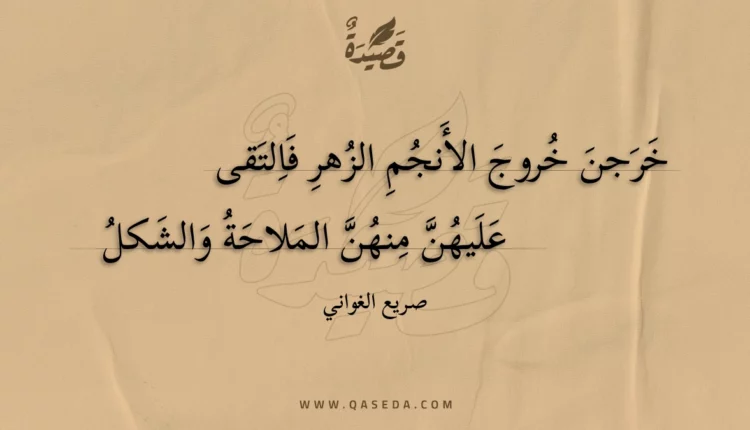 قَصِيدَةٌ
خَرَجنَ خُروجَ الأَنجُمِ الزُهرِ فَاِلتَقى
عَلَيهُنَّ مِنهُنَّ المَلاحَةُ وَالشَكلُ
صريع الغواني
WWW.QASEDA.COM